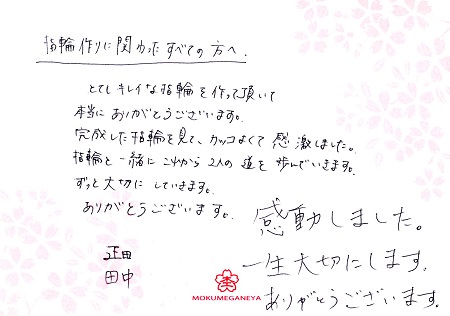 指輪作りに関わったすべての方へ.
とてもキレイな指輪を作って頂いて
本当にありがとうございます。
完成した指輪を見て、カッコよくて感激しました。
指輪と一緒にこれから2人の道を歩んでいきます。
ずっと大切にしていきます。
ありがとうございます。
正田
田中
感動しました。
一生大切にします。
ありがとうございます.
MOKUMEGANEYA